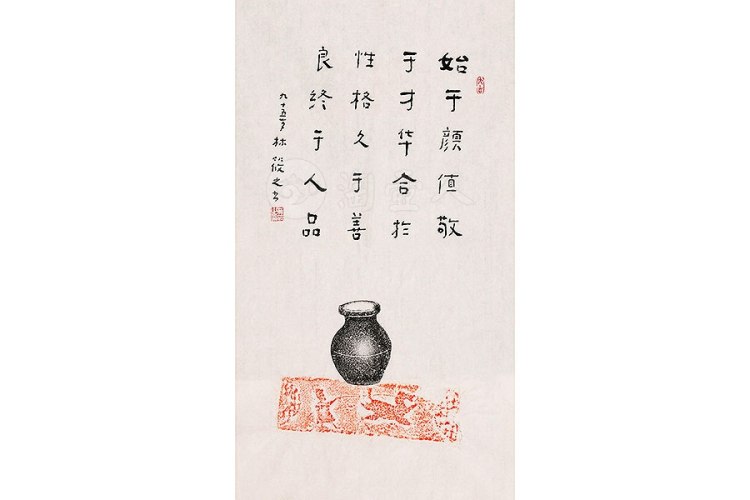 始于顔值敬
于才华合扵
性格久于善
良终于人品
九十五岁林筱之书